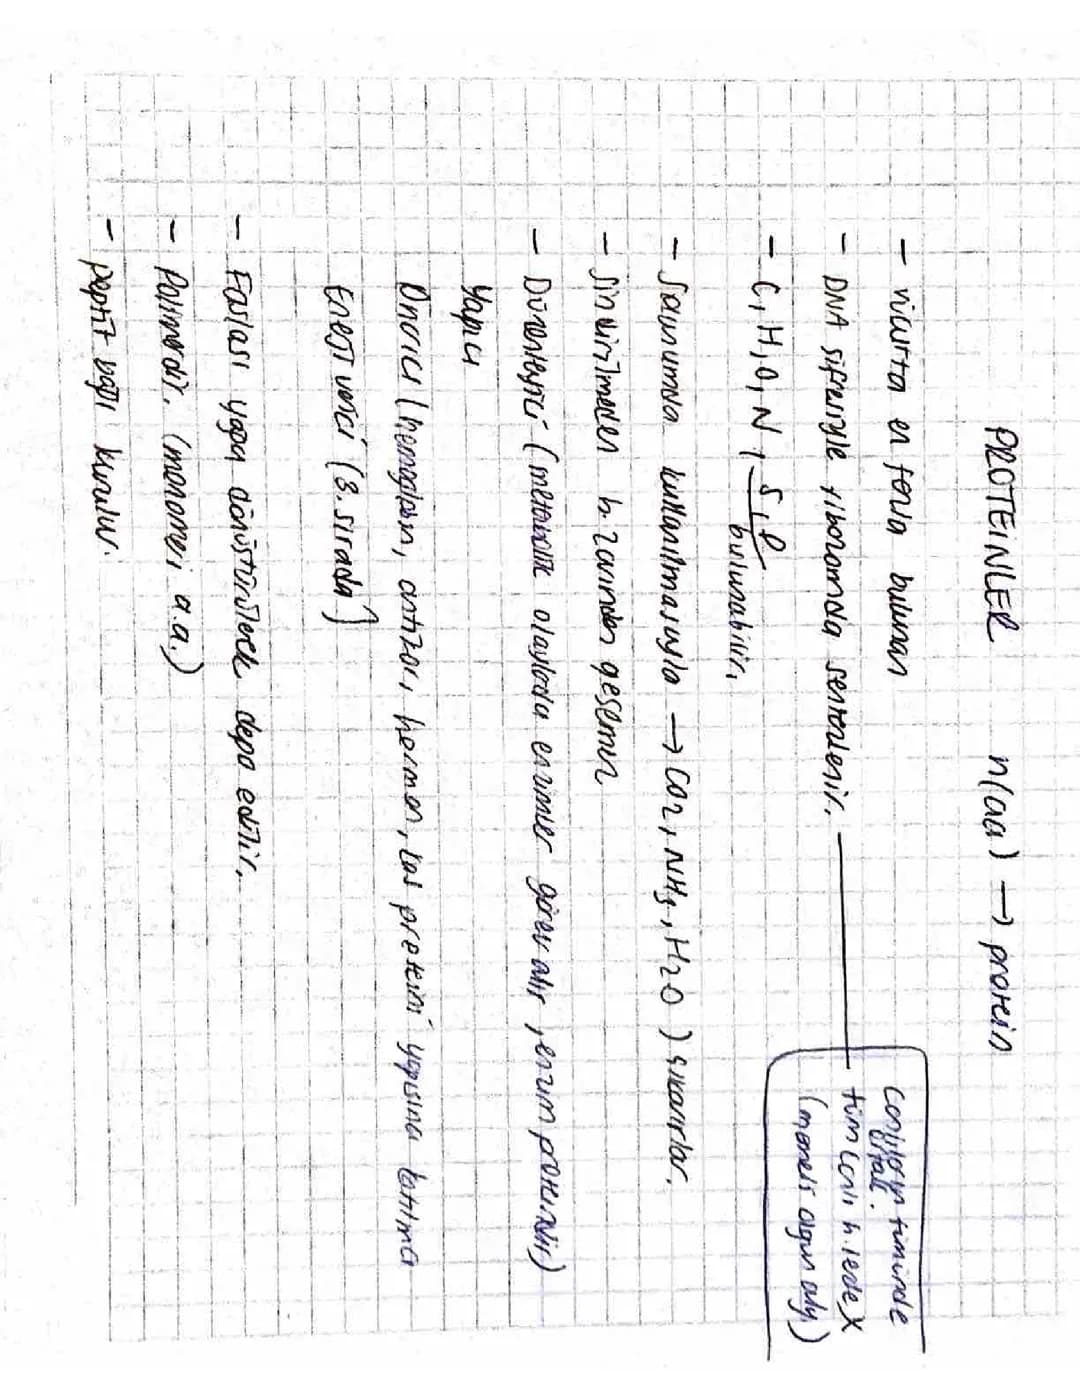 PROTEİNLER n(aa) → protein
- vücutta en fazla bulunan
- DNA şifresiyle ribozomda sentezlenir.
canlıların tümünde
ortak.
tüm canlı h.lerde X
(memeli olgun alyu.)
- C, H, O, N, S, P
bulunabilir.
- Solunumda kullanılmasıyla → CO2, NH3, H2O) çıkarırlar.
- Sindirilmeden h. zarından geçemez
- Düzenleyici (metabolik olaylarda enzimler görev alır, enzim proteindir)
Yapıcı
Onarıcı (hemoglobin, antikor, hormon, kas proteini yapısına katılma
Enerji verici (3. sırada)
- Fazlası yağa dönüştürülerek depo edilir.
- Polimerdir. (monomeri a.a.)
- peptit bağı kurulur.